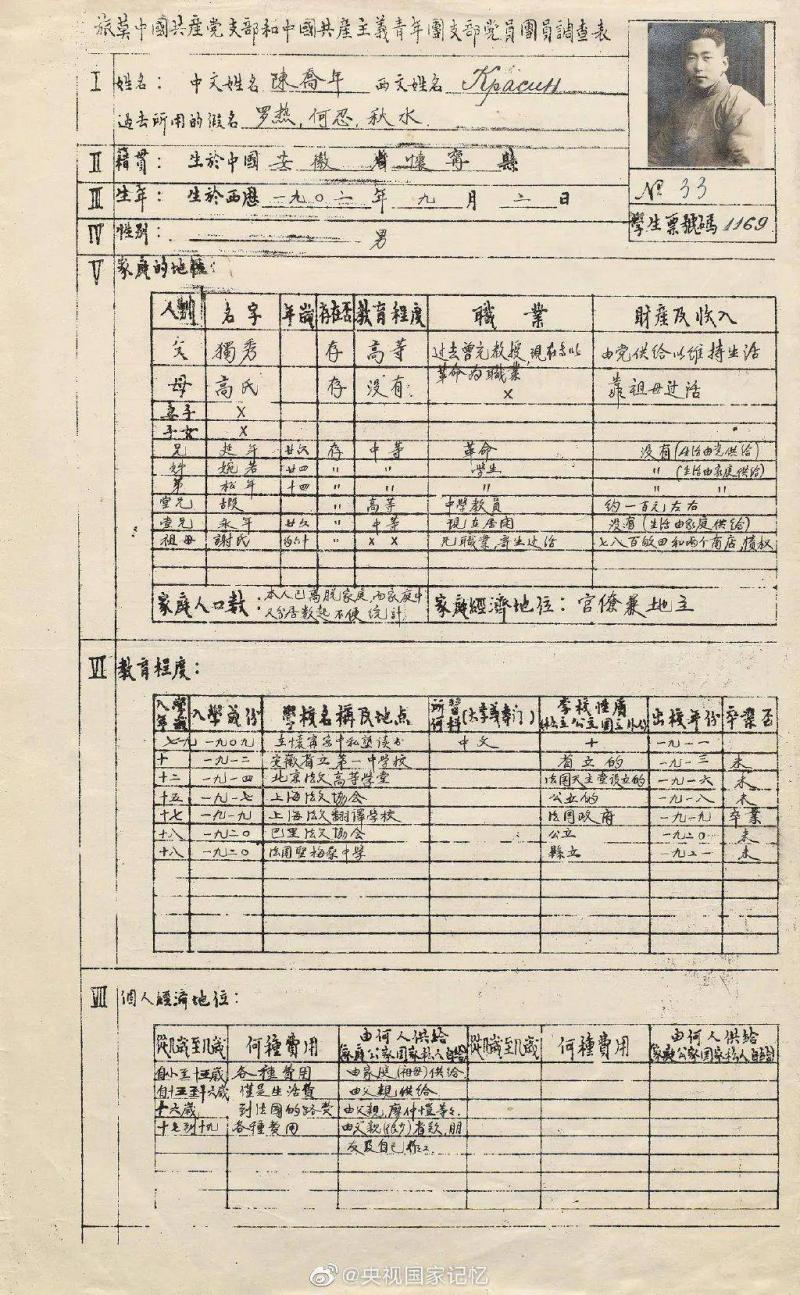 旅莫中國共産党支部和中國共産主義青年團支部党員團員調查表
I 姓名： 中文姓名 陳喬年 西文姓名 Красин
過去所用的假名 罗热，何忍，秋水
№ 33
學生票號碼 1169
II 籍贯： 生於中國 安徽 省 懷甯 縣
III 生年： 生於西歷 一九〇二 年 九 月 二 日
IV 性别： 男
V 家庭的地位：
人别 名字 年齡 存在否 教育程度 職業 財産及收入
父 獨秀 存 高等 过去曾充教授，現在专以革命为職業 由党供给以维持生活
母 高氏 存 没有 × 靠祖母过活
妻子 ×
子女 ×
兄 延年 廿六 存 中等 革命 没有(生活由党供给)
姊 婉若 廿四 〃 〃 学生 〃 (生活由家庭供给)
弟 松年 十四 〃 〃 〃 〃
堂兄 遐 〃 高等 中學教員 约一百元左右
堂兄 永年 〃 中等 現在居闲 没有(生活由家庭供给)
祖母 謝氏 〃 × × 無職業，寄生过活 七八百畝田和两个商店，債权
家庭人口數： 本人已离脱家庭，而家庭中人分居数起不便统計 家庭經濟地位： 官僚兼地主
VI 教育程度：
入學年歲 入學年份 學校名稱及地点 所習何科(大学或专门) 学校性质 出校年份 卒業否
七 一九〇九 在懷甯家中私塾读书 中文 十 一九一一
十 一九一二 安徽省立第一中学校 省立的 一九一三 未
十二 一九一四 北京法文高等学堂 法国天主堂设立的 一九一六 未
十五 一九一七 上海法文协会 公立的 一九一八 未
十七 一九一九 上海法文翻譯学校 法国政府 一九一九 卒業
十八 一九二〇 巴里法文协会 公立 一九二〇 未
十八 一九二〇 法國聖梅桑中学 縣立 一九二一 未
VII 個人經濟地位：
從几歲至几歲 何種費用 由何人供給 從几歲至几歲 何種費用 由何人供給
自小至十五歲 各種費用 由家庭(祖母)供给
自十五至十六歲 僅是生活费 由父親供给
十六歲 到法國的路费 由父親，
十七到十九 各種費用 由父親(很少)者欵，朋
友及自己作工
@央视国家记忆